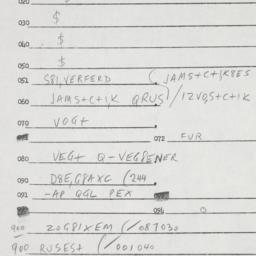 020
030 $
040 $
050 $
051 S81,VERFERD (JAMS+C+1K8ES
060 JAMS+C+1K QRUS / 12VQS+C+1K
070 VOG+
072 FUR
080 VEG+ Q-VEG8ENER
090 D8E,G8AXC (244
091 -AP QGL PEX
096 0
900 20G81XEM (/087030
900 RUSES+ (/001040